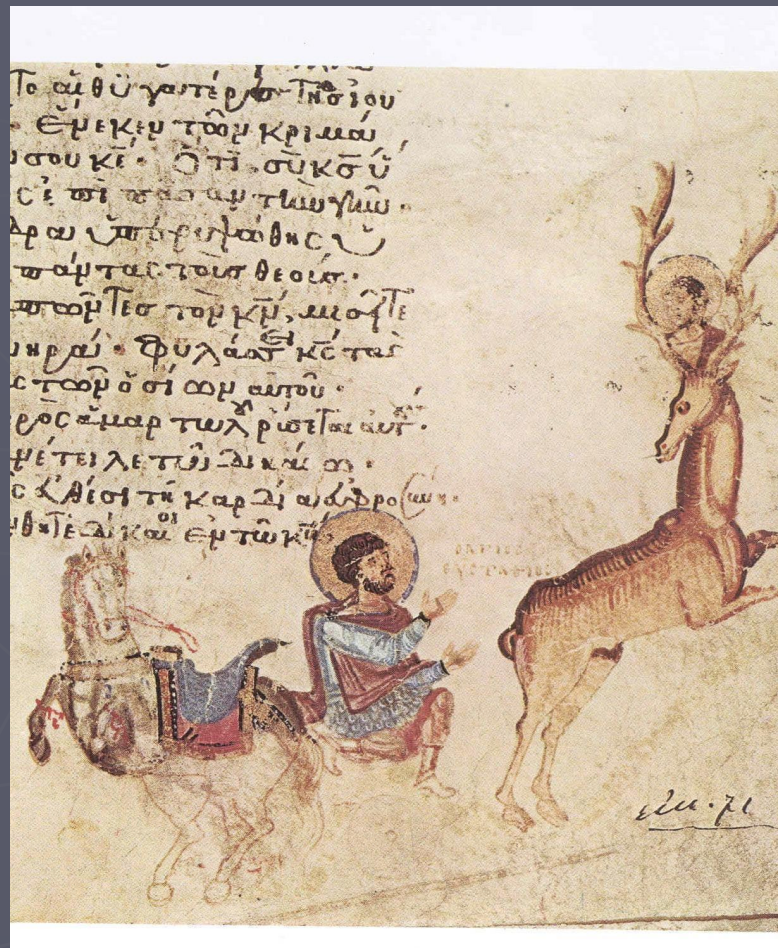 το αἱ θυγατέρες τῆς ϊου
ἕνεκεν τῶν κριμά
σου κε· Ὅτι σὺ κς ὕ
ς ἐπὶ πᾶσαν τὴν γῆν·
δρα ὑπερυψώθης ὑ
πάντας τοὺς θεούς·
πῶντες τὸν κν, μισεῖτε
νηρά· Φυλάσσει κς τὰς
ς τῶν ὁσίων αὐτοῦ·
ρὸς ἁμαρτωλῶν ῥύσεται αὐτ·
νέτειλε τῶ δικαίω·
ς εὐθέσι τῆ καρδία εὐφροσύνη·
νθητε δίκαιοι ἐν τῶ κω
Ο ΑΓΙΟΣ
ΕΥΣΤΑΘΙΟΣ